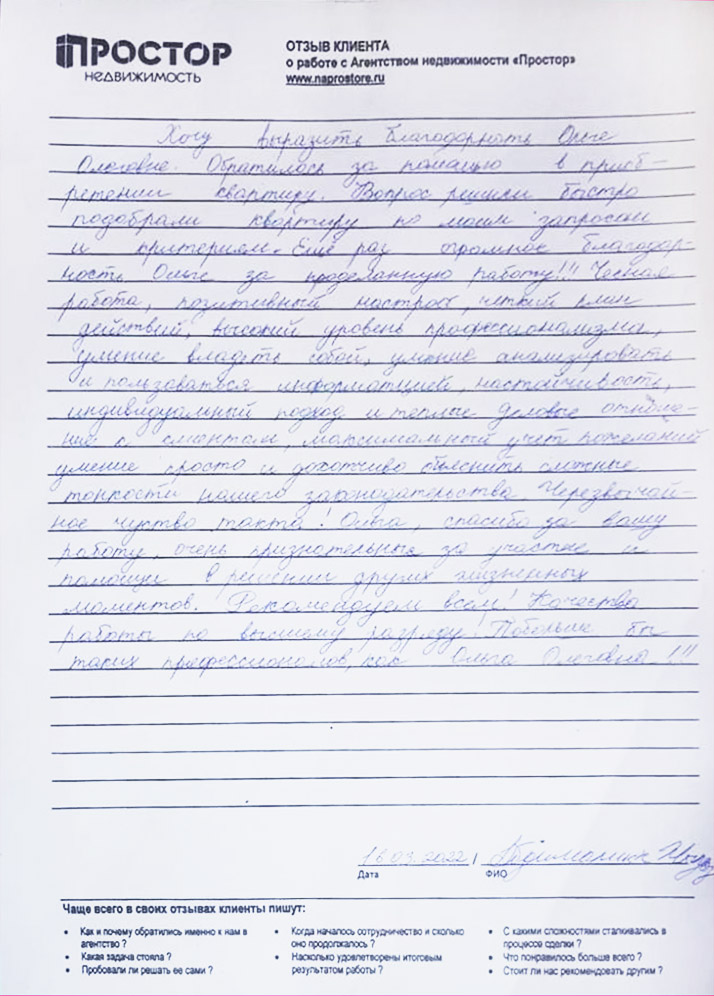 ПРОСТОР
НЕДВИЖИМОСТЬ
ОТЗЫВ КЛИЕНТА
о работе с Агентством недвижимости «Простор»
www.naprostore.ru
Хочу выразить благодарность Ольге
Олеговне. Обратилась за помощью в приоб-
ретении квартиру. Вопрос решили быстро
подобрали квартиру по моим запросам
и критериям. Ещё раз огромное благодар-
ность Ольге за проделанную работу!!! Чесная
работа, позитивный настрой, четкий план
действий, высокий уровень профессионализма,
умение владеть собой, умение анализировать
и пользоваться информацией, настойчивость,
индивидуальный подход и теплые деловые отноше-
ние к клиентам, максимальный учет пожеланий
умение просто и доходчиво объяснить сложные
тонкости нашего законодательства. Черезвычай-
ное чуство такта! Ольга, спасибо за вашу
работу, очень признательны за участие и
помощи в решении других жизненных
моментов. Рекомендуем всем! Качества
работы по высшему разряду! Побольше бы
таких профессионалов, как Ольга Олеговна!!!
16.03.2022 /
Дата
ФИО
Чаще всего в своих отзывах клиенты пишут:
• Как и почему обратились именно к нам в
агентство ?
• Какая задача стояла ?
• Пробовали ли решать ее сами ?
• Когда началось сотрудничество и сколько
оно продолжалось ?
• Насколько удовлетворены итоговым
результатом работы ?
• С какими сложностями сталкивались в
процессе сделки ?
• Что понравилось больше всего ?
• Стоит ли нас рекомендовать другим ?